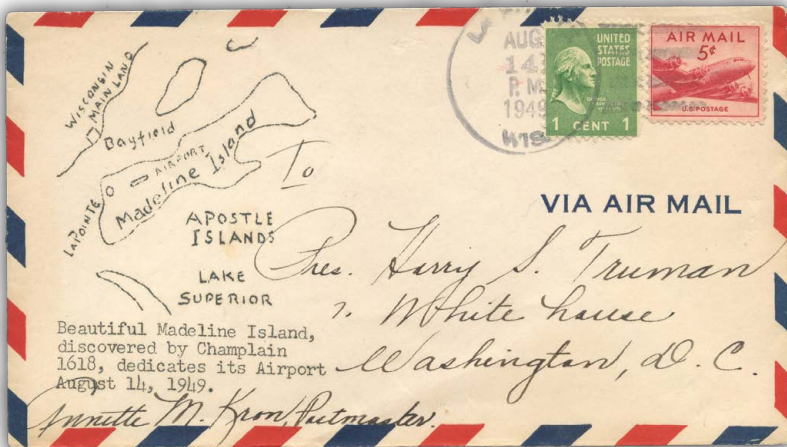 AUG
14
P.M.
1949
WIS.
UNITED
STATES
POSTAGE
1 CENT 1
AIR MAIL
5¢
U.S. POSTAGE
WISCONSIN
MAIN LAND
Bayfield
AIRPORT
Madeline Island
LAPOINTE
APOSTLE
ISLANDS
LAKE
SUPERIOR
To
VIA AIR MAIL
Pres. Harry S. Truman
White house
Washington, D. C.
Beautiful Madeline Island,
discovered by Champlain
1618, dedicates its Airport
August 14, 1949.
Annette M. Kron, Postmaster.